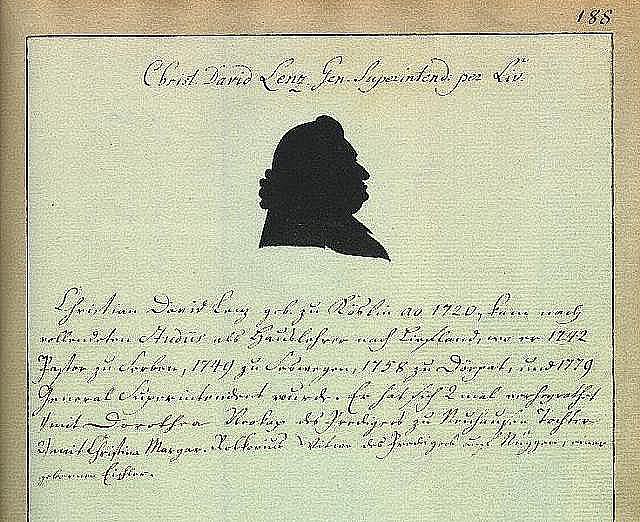 188
Christ. David Lenz. Gen. Superintend: per Liv.
Christian David Lenz geb. zu Köslin ao 1720, kam nach
vollendeten Studiis als Hauslehrer nach Liefland, wo er 1742
Pastor zu Serben, 1749 zu Seswegen, 1758 zu Dörpat, und 1779
General Superintendent wurde. Er hat sich 2 mal verheyrathet
1) mit Dorothea Neokap des Predigers zu Neuhausen Tochter
2) mit Christina Margar. Wittwe des Predigers Nüggen, einer
gebornen Eichler.